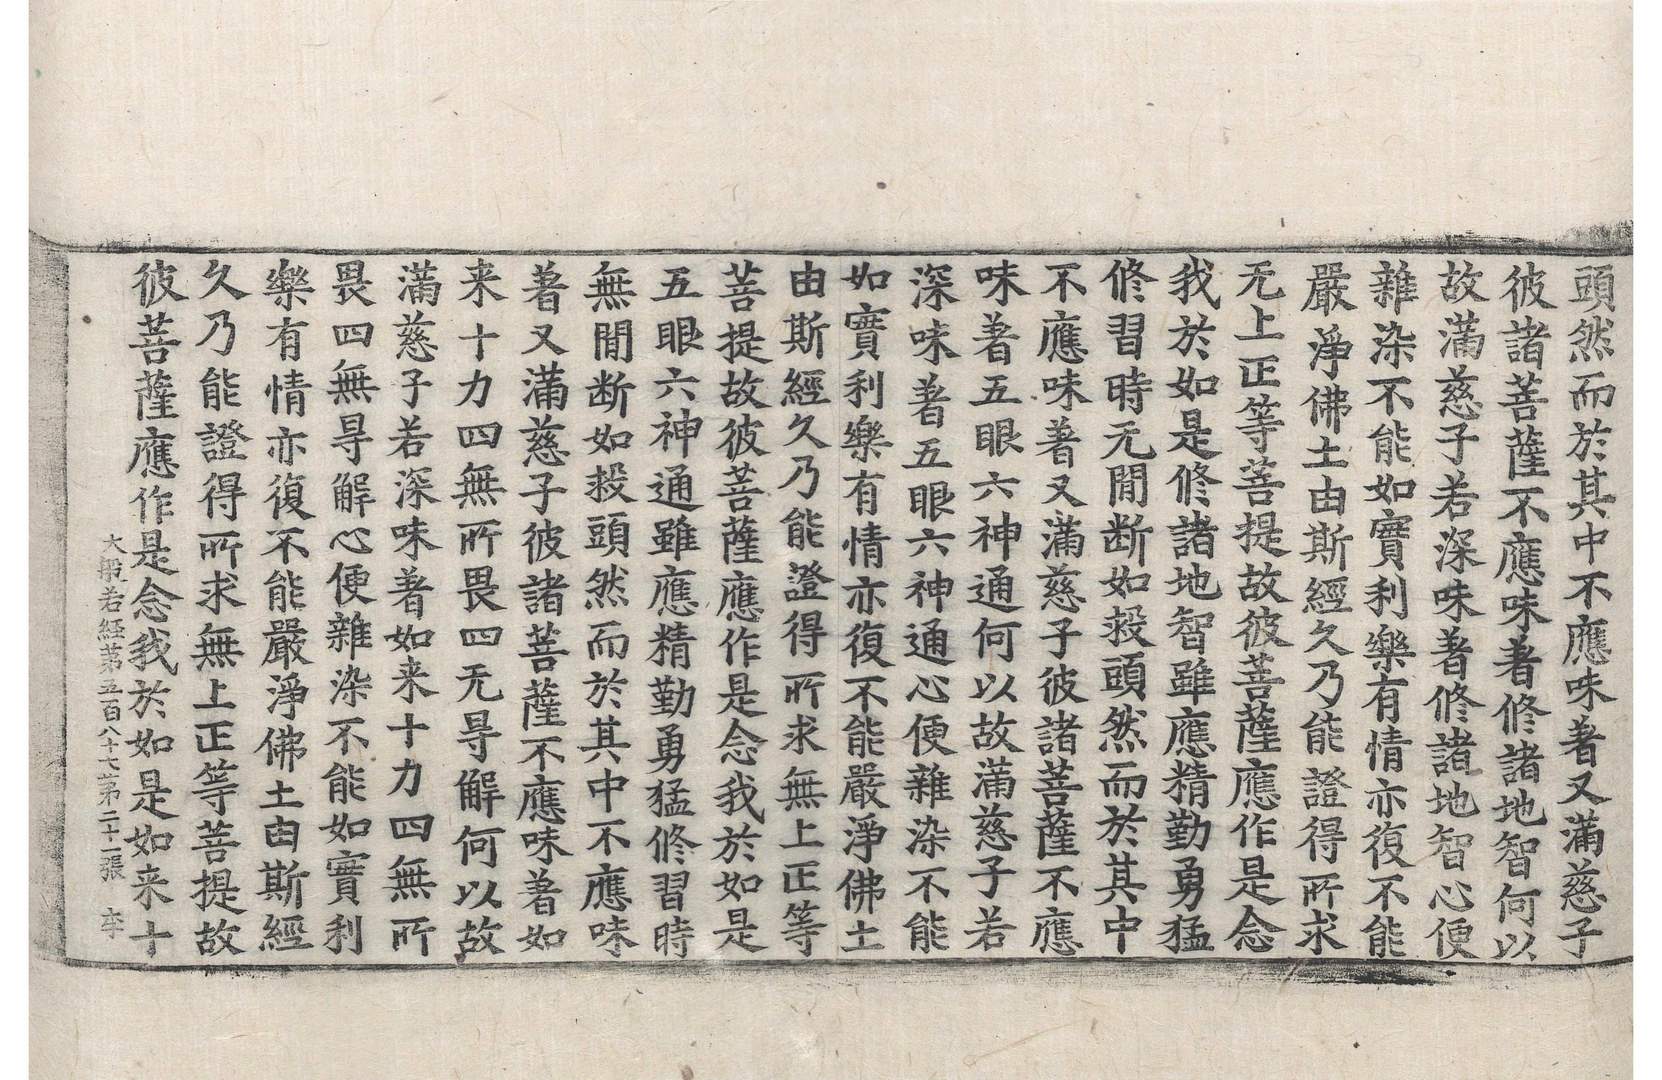 頭然而於其中不應味著又滿慈子
彼諸菩薩不應味著修諸地智何以
故滿慈子若深味著修諸地智心便
雜染不能如實利樂有情亦復不能
嚴淨佛土由斯經久乃能證得所求
无上正等菩提故彼菩薩應作是念
我於如是修諸地智雖應精勤勇猛
修習時无間断如救頭然而於其中
不應味著又滿慈子彼諸菩薩不應
味著五眼六神通何以故滿慈子若
深味著五眼六神通心便雜染不能
如實利樂有情亦復不能嚴淨佛土
由斯經久乃能證得所求無上正等
菩提故彼菩薩應作是念我於如是
五眼六神通雖應精勤勇猛修習時
無間断如救頭然而於其中不應味
著又滿慈子彼諸菩薩不應味著如
来十力四無所畏四无㝵解何以故
滿慈子若深味著如来十力四無所
畏四無㝵解心便雜染不能如實利
樂有情亦復不能嚴淨佛土由斯經
久乃能證得所求無上正等菩提故
彼菩薩應作是念我於如是如来十
大般若経第五百八十七 第二十一張 李